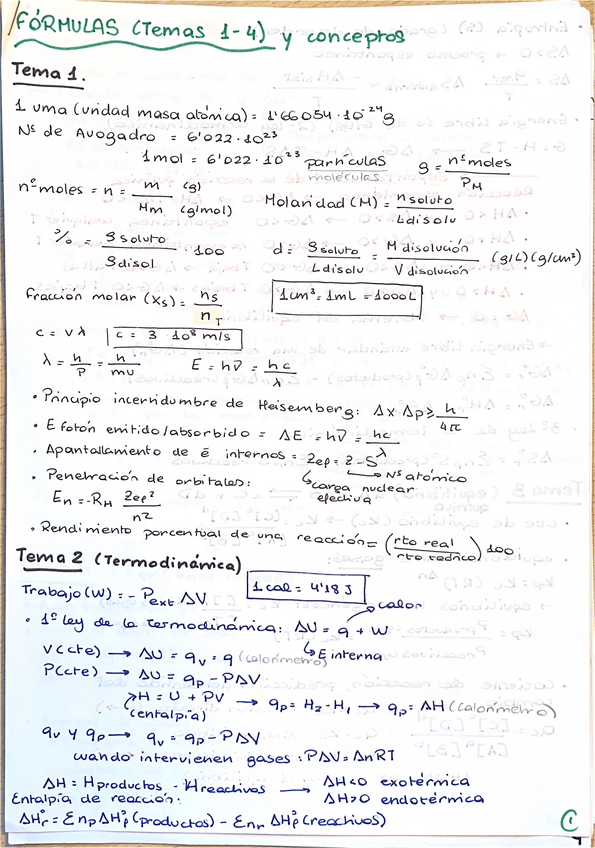 FÓRMULAS (Temas 1-4) y conceptos
Tema 1.
1 uma (unidad masa atómica) = 1'66054 · 10⁻²⁴ g
Nº de Avogadro = 6'022 · 10²³
1 mol = 6'022 · 10²³ partículas
moléculas
g = nº moles / PM
nº moles = n = m (g) / Mm (g/mol)
Molaridad (M) = n soluto / L disolu
% = g soluto / g disol · 100
d = g soluto / L disolu = M disolución / V disolución (g/L) (g/cm³)
fracción molar (Xs) = ns / nT
1cm³ = 1mL = 1000L
c = ν λ
c = 3 · 10⁸ m/s
λ = h / P = h / mv
E = hν = hc / λ
· Principio incertidumbre de Heisemberg: Δx Δp ≥ h / 4π
· E fotón emitido/absorbido = ΔE = hν = hc / λ
· Apantallamiento de é internos = Zef = Z - S
Nº atómico
carga nuclear efectiva
· Penetración de orbitales:
En = -RH Zef² / n²
· Rendimiento porcentual de una reacción = (rto real / rto teórico) 100
Tema 2 (Termodinámica)
1 cal = 4'18 J
Trabajo (W) = - Pext ΔV
calor
· 1º ley de la termodinámica: ΔU = q + W
E interna
V(cte) → ΔU = qv = q (calorímetro)
P(cte) → ΔU = qp - PΔV
H = U + PV → qp = H₂ - H₁ → qp = ΔH (calorímetro)
(entalpía)
qv y qp → qv = qp - PΔV
cuando intervienen gases : PΔV = ΔnRT
ΔH = Hproductos - Hreactivos → ΔH<0 exotérmica
ΔH>0 endotérmica
Entalpía de reacción:
ΔHr° = Σnp ΔHf° (productos) - Σnr ΔHf° (reactivos)